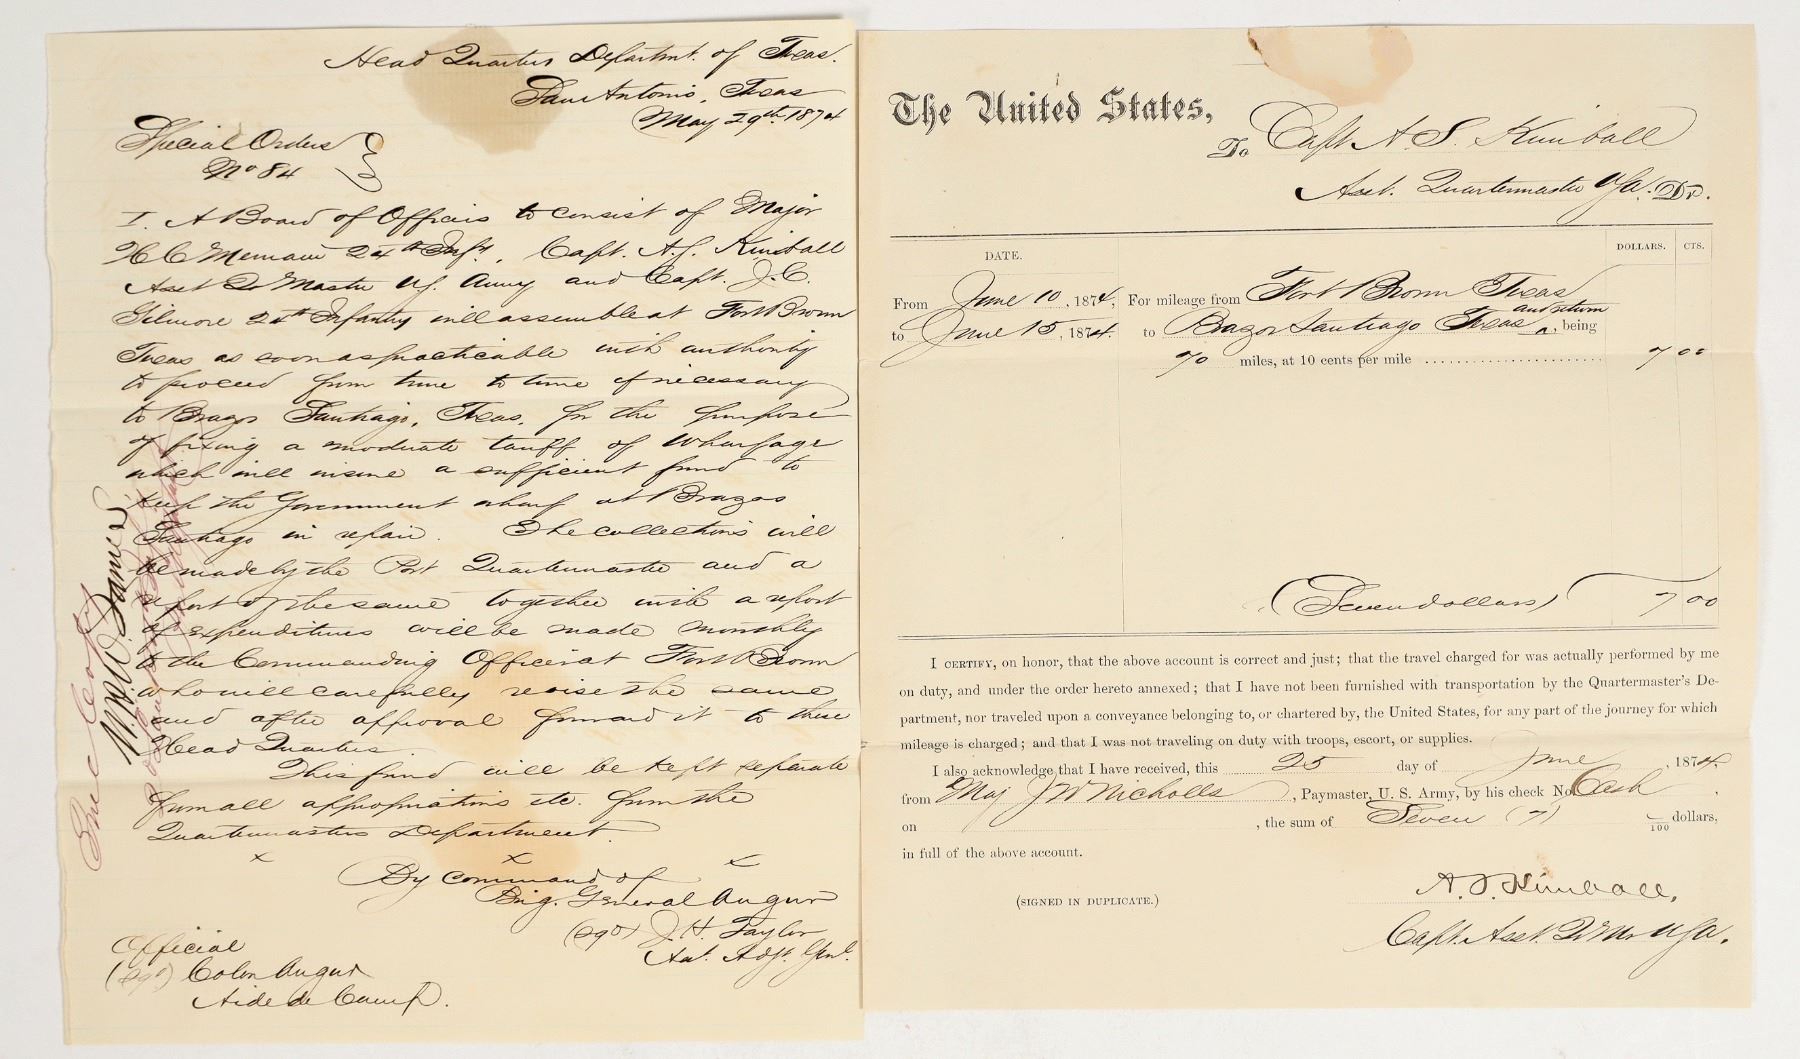 Head Quarters Departmt. of Texas.
San Antonio, Texas
May 29th 1874
Special Orders
No 84
I. A Board of Officers to consist of Major
H C Merriam 24th Infy., Capt. A. S. Kimball
Asst Qr Master U.S. Army and Capt. J. C.
Gilmore 24th Infantry will assemble at Fort Brown
Texas as soon as practicable with authority
to proceed from time to time if necessary
to Brazos Santiago, Texas, for the purpose
of fixing a moderate tariff of wharfage
which will insure a sufficient fund to
keep the Government wharf at Brazos
Santiago in repair. The collections will
be made by the Post Quartermaster and a
report of the same together with a report
of expenditures will be made monthly
to the Commanding Officer at Fort Brown
who will carefully revise the same
and after approval forward it to these
Head Quarters.
This fund will be kept separate
from all appropriations etc. from the
Quartermasters Department.
x x x
By command of
Brig. General Augur
(Sgd) J. H. Taylor
Asst. Adjt. Genl.
Official
(Sgd) Colon Augur
Aide de Camp.
True Copy
The United States,
To Capt A. S. Kimball
Asst. Quartermaster USA. Dr.
DATE. DOLLARS. CTS.
From June 10, 1874, For mileage from Fort Brown Texas
and return
to June 15, 1874. to Brazos Santiago Texas ^, being
70 miles, at 10 cents per mile 7 00
(Seven dollars) 7 00
I CERTIFY, on honor, that the above account is correct and just; that the travel charged for was actually performed by me
on duty, and under the order hereto annexed; that I have not been furnished with transportation by the Quartermaster's De-
partment, nor traveled upon a conveyance belonging to, or chartered by, the United States, for any part of the journey for which
mileage is charged; and that I was not traveling on duty with troops, escort, or supplies.
I also acknowledge that I have received, this 25 day of June, 1874.
from Maj J W Nicholls, Paymaster, U. S. Army, by his check No. Cash.
on , the sum of Seven (7) /100 dollars,
in full of the above account.
(SIGNED IN DUPLICATE.)
A. S. Kimball,
Capt. Asst. Q. M. USA.